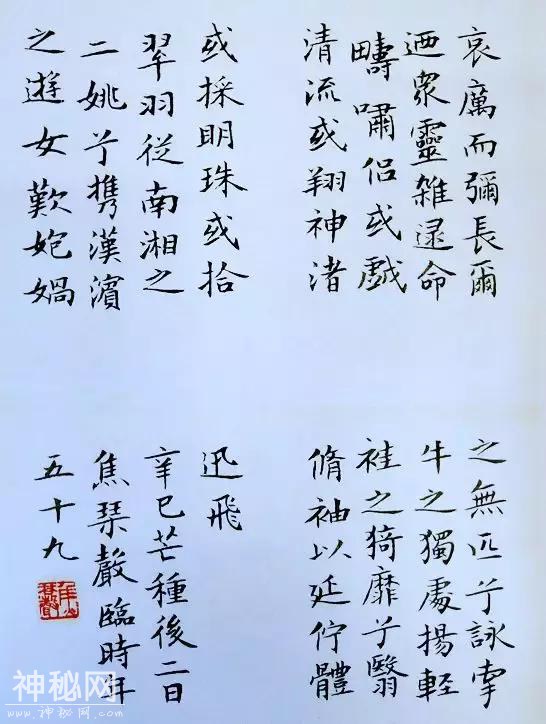 哀厲而彌長爾
迺眾靈雜遝命
疇嘯侶或戯
清流或翔神渚
或採明珠或拾
翠羽從南湘之
二姚兮携漢濱
之遊女歎㚿媧
之無匹兮詠牽
牛之獨處揚軽
袿之猗靡兮翳
脩袖以延佇體
迅飛
辛巳芒種後二日
焦琹聲臨時年
五十九
神秘网
WWW.神秘网.COM